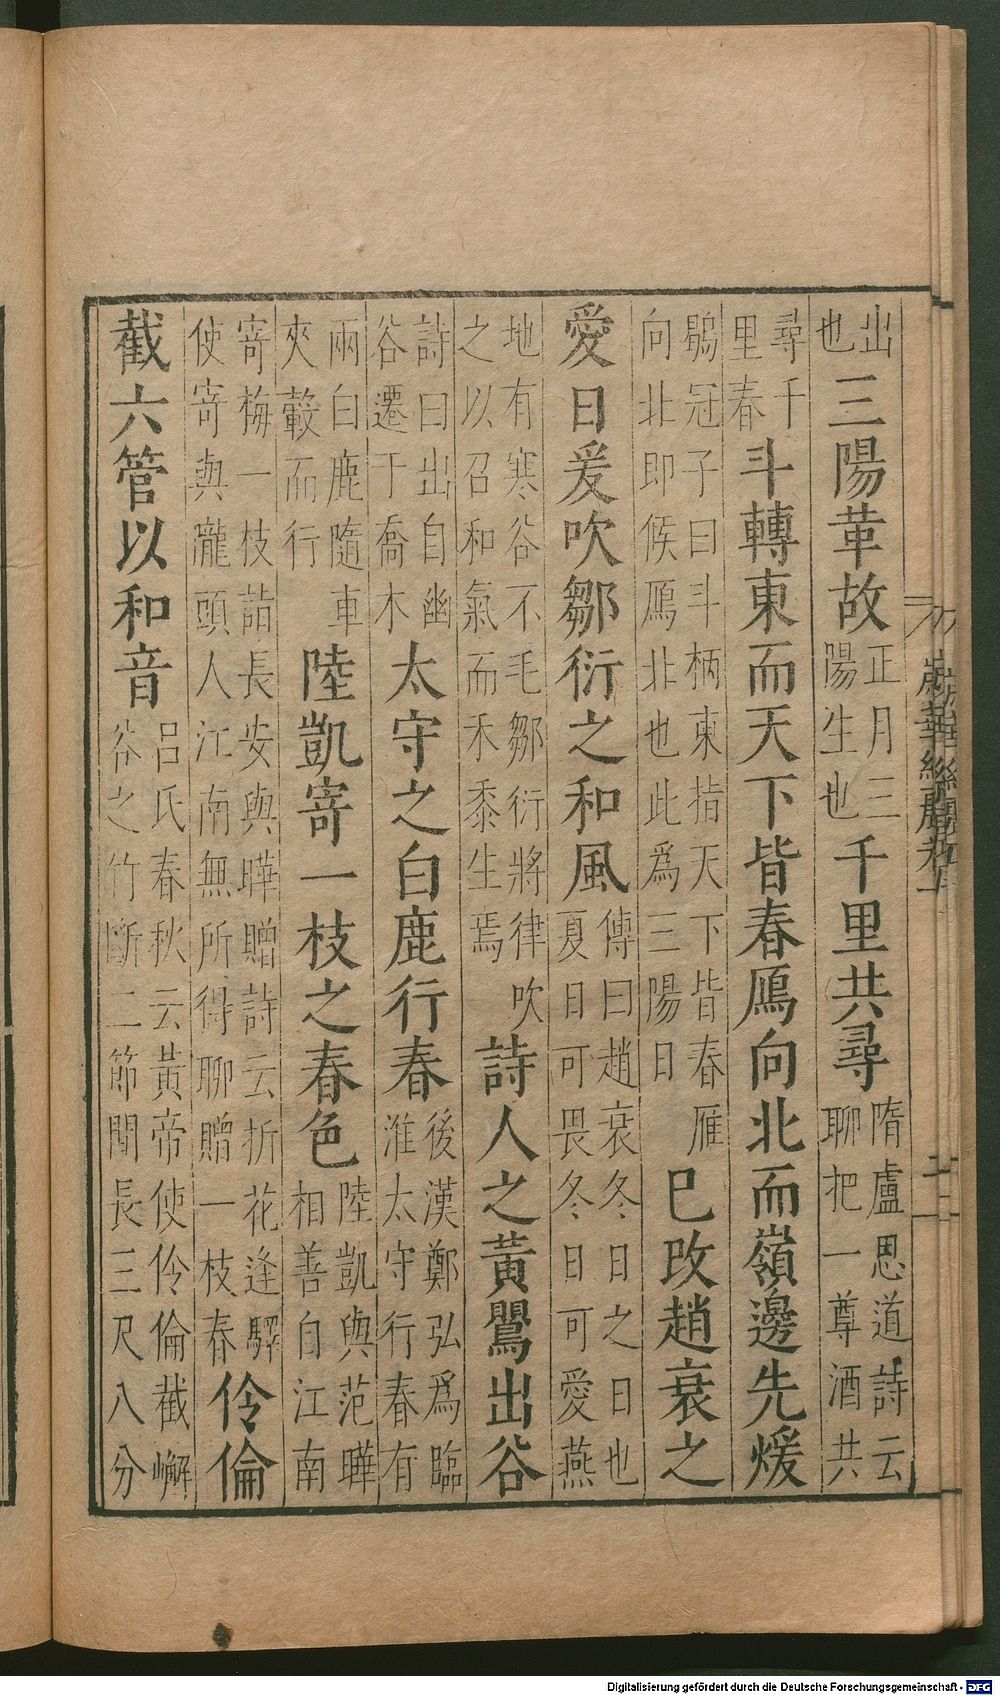 出也三陽革故正月三陽生也千里共尋隋盧思道詩云聊把一尊酒共
尋千里春斗轉東而天下皆春鴈向北而嶺邊先煖
鶡冠子曰斗柄東指天下皆春雁向北即候鴈北也此為三陽日巳改趙衰之
愛日爰吹鄒衍之和風傳曰趙衰冬日之日也夏日可畏冬日可愛燕
地有寒谷不毛鄒衍將律吹之以召和氣而禾黍生焉詩人之黃鸎出谷
詩曰出自幽谷遷于喬木太守之白鹿行春後漢鄭弘爲臨淮太守行春有
兩白鹿隨車夾轂而行陸凱寄一枝之春色陸凱與范曄相善自江南
寄梅一枝詣長安與曄贈詩云折花逢驛使寄與隴頭人江南無所得聊贈一枝春伶倫
截六管以和音呂氏春秋云黃帝使伶倫截嶰谷之竹斷二節間長三尺八分
歲華紀麗卷一
Digitalisierung gefördert durch die Deutsche Forschungsgemeinschaft - DFG